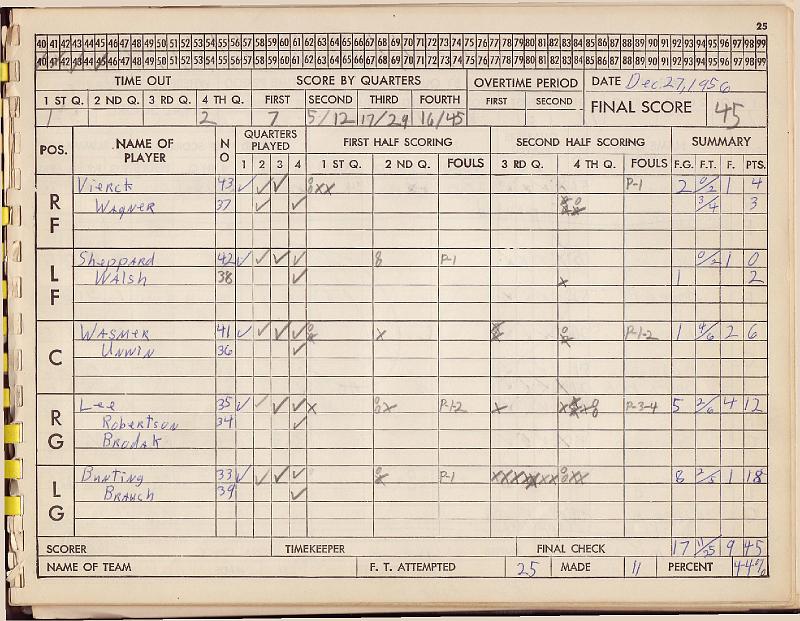 25
40 41 42 43 44 45 46 47 48 49 50 51 52 53 54 55 56 57 58 59 60 61 62 63 64 65 66 67 68 69 70 71 72 73 74 75 76 77 78 79 80 81 82 83 84 85 86 87 88 89 90 91 92 93 94 95 96 97 98 99
40 41 42 43 44 45 46 47 48 49 50 51 52 53 54 55 56 57 58 59 60 61 62 63 64 65 66 67 68 69 70 71 72 73 74 75 76 77 78 79 80 81 82 83 84 85 86 87 88 89 90 91 92 93 94 95 96 97 98 99
TIME OUT SCORE BY QUARTERS OVERTIME PERIOD DATE Dec. 27, 1956
1 ST Q. 2 ND Q. 3 RD Q. 4 TH Q. FIRST SECOND THIRD FOURTH FIRST SECOND FINAL SCORE 45
1 2 7 5/12 17/29 16/45
POS. NAME OF PLAYER NO QUARTERS PLAYED FIRST HALF SCORING SECOND HALF SCORING SUMMARY
1 2 3 4 1 ST Q. 2 ND Q. FOULS 3 RD Q. 4 TH Q. FOULS F.G. F.T. F. PTS.
RF Vierck 43 ✓ ✓ ✓ xx P-1 2 0/2 1 4
Wagner 37 ✓ ✓ 3/4 3
LF Sheppard 42 ✓ ✓ ✓ ✓ P-1 0/2 1 0
Walsh 38 ✓ x 1 2
C Wasmer 41 ✓ ✓ ✓ ✓ x P-1-2 1 4/6 2 6
Unwin 36 ✓
RG Lee 35 ✓ ✓ ✓ ✓ x x P-1-2 x P-3-4 5 2/6 4 12
Robertson 34 ✓
Brodak
LG Bunting 33 ✓ ✓ ✓ ✓ P-1 8 2/5 1 18
Brauch 39 ✓
SCORER TIMEKEEPER FINAL CHECK 17 11/25 9 45
NAME OF TEAM F. T. ATTEMPTED 25 MADE 11 PERCENT 44%